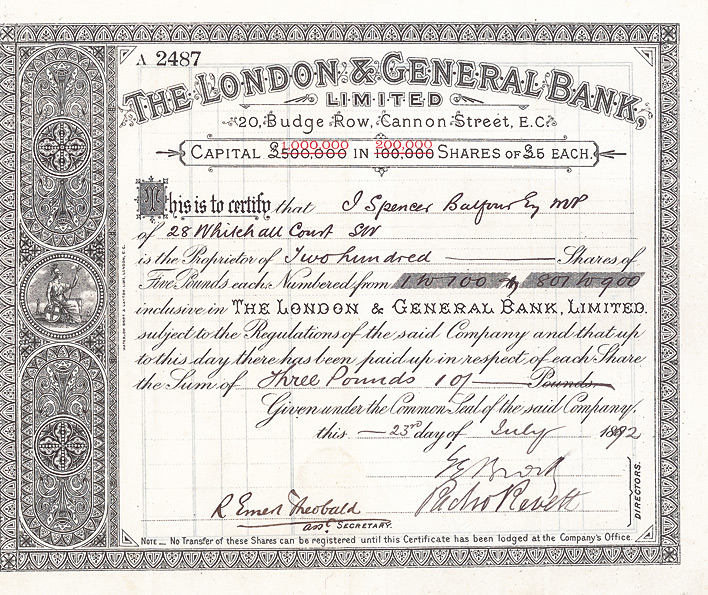 A 2487
THE LONDON & GENERAL BANK,
LIMITED
20, Budge Row, Cannon Street, E.C.
1,000,000 200,000
CAPITAL £500,000 IN 100,000 SHARES OF £5 EACH.
This is to certify that J Spencer Balfour Esq MP
of 28 Whitehall Court SW
is the Proprietor of Two hundred Shares of
Five Pounds each Numbered from 1 to 100 & 801 to 900
inclusive in THE LONDON & GENERAL BANK, LIMITED.
subject to the Regulations of the said Company and that up
to this day there has been paid up in respect of each Share
the Sum of Three Pounds 10/ Pounds
Given under the Common Seal of the said Company,
this 23rd day of July 1892
R Ernest Theobald
asst. SECRETARY.
DIRECTORS.
NOTE — No Transfer of these Shares can be registered until this Certificate has been lodged at the Company's Office.